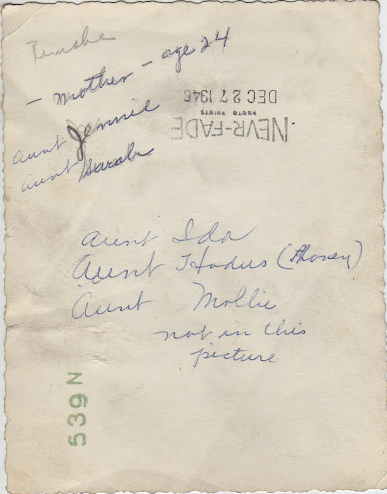 - mother - age 24
aunt Jennie
aunt Sarah
DEC 27 1946
PHOTO PRINTS
NEVR-FADE
aunt Ida
Aunt Hodus
Aunt Mollie
not in this
picture
539 N